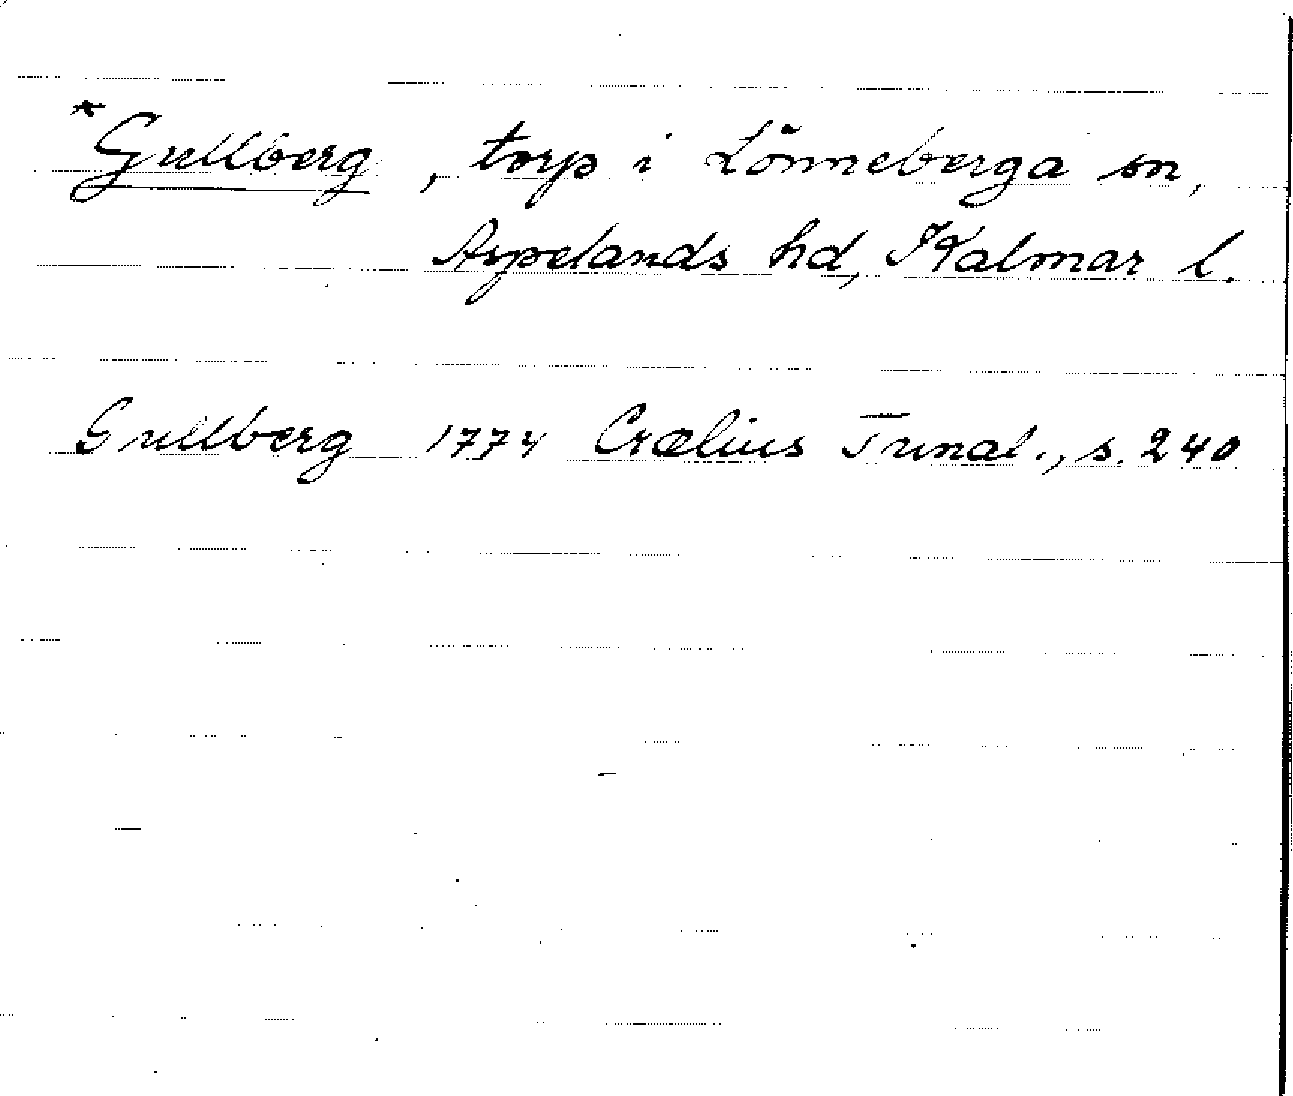 *Gullberg, torp i Lönneberga sn,
Aspelands hd, Kalmar l.
Gullberg 1774 Crælius Tunal., s. 240